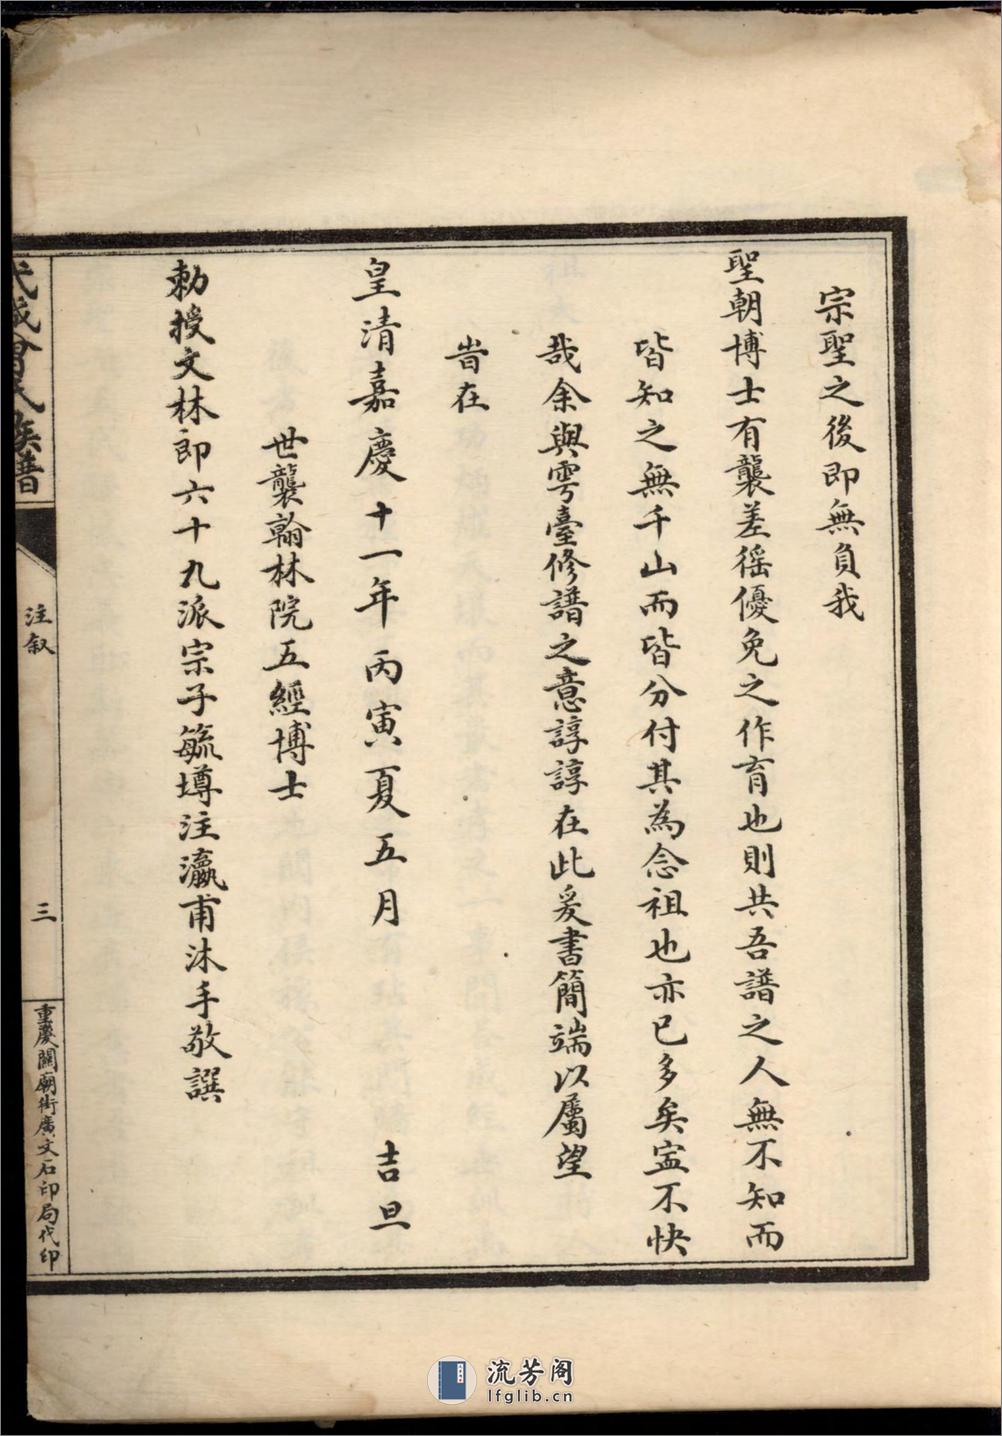 宗聖之後即無負我
聖朝博士有襲差徭優免之作育也則共吾譜之人無不知而
皆知之無千山而皆分付其為念祖也亦已多矣寍不快
哉余與雩臺修譜之意諄諄在此爰書簡端以屬望
旹在
皇清嘉慶十一年丙寅夏五月 吉旦
世襲翰林院五經博士
勅授文林郎六十九派宗子毓墫注瀛甫沐手敬譔
武城曾氏族譜
注叙
三
重慶關廟街廣文石印局代印
流芳阁
lfglib.cn